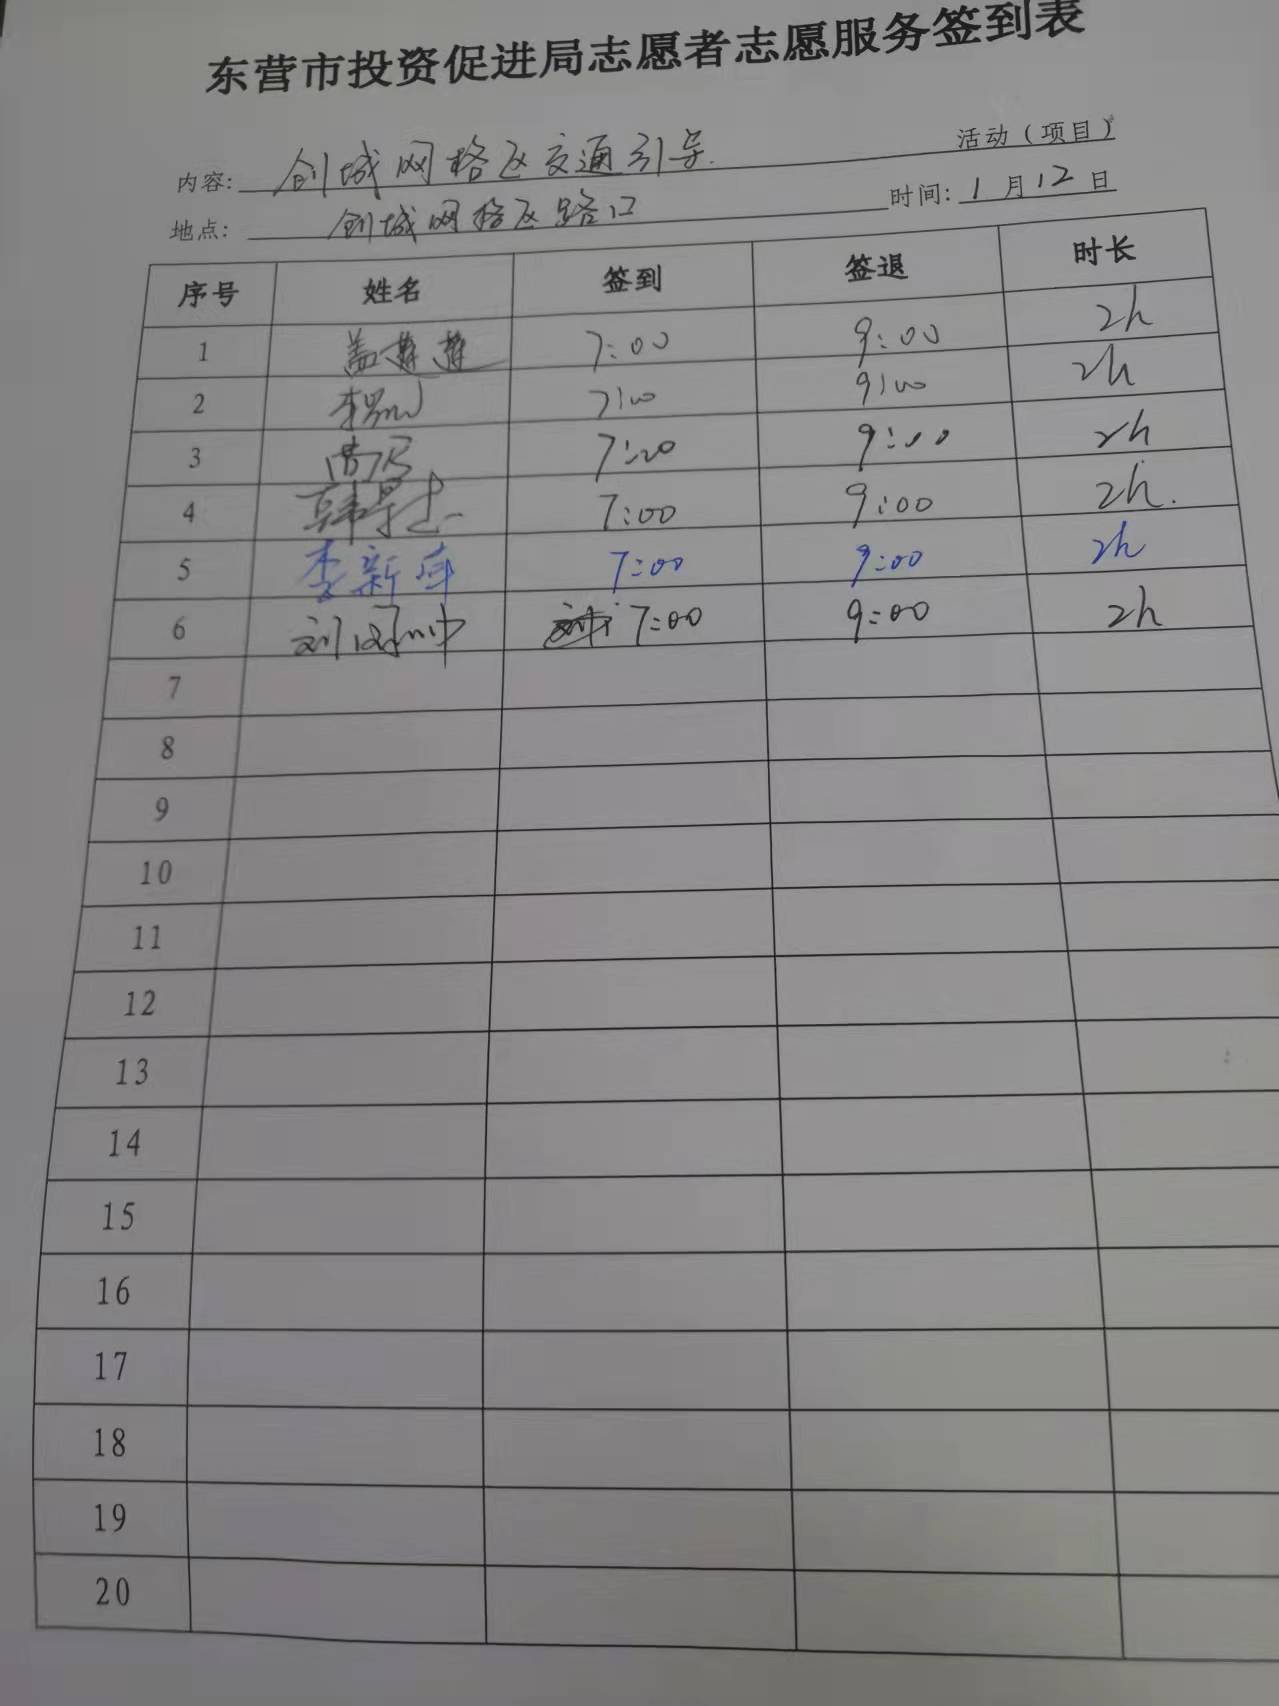 东营市投资促进局志愿者志愿服务签到表
内容: 创城网格区交通引导 活动(项目)
地点: 创城网格区路口 时间: 1月12日
序号 姓名 签到 签退 时长
1 盖 7:00 9:00 2h
2 李 7:00 9:00 2h
3 7:00 9:00 2h
4 韩 7:00 9:00 2h.
5 李新 7:00 9:00 2h
6 刘 7:00 9:00 2h
7
8
9
10
11
12
13
14
15
16
17
18
19
20